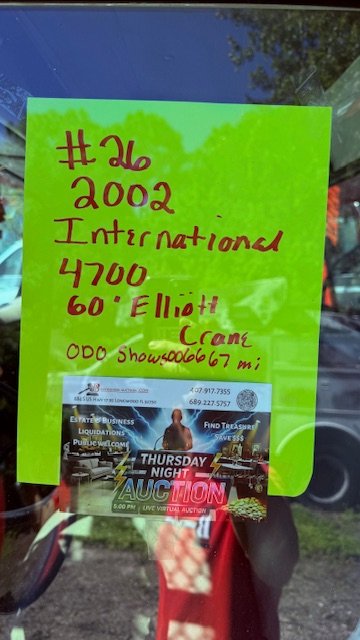 #26
2002
International
4700
60' Elliott
Crane
ODO Shows006667 mi
407.917.7355
689.227.5757
Estate & Business
Liquidations
Public welcome
Find Treasure
Save $$$
THURSDAY
NIGHT
AUCTION
5:00 PM | LIVE VIRTUAL AUCTION